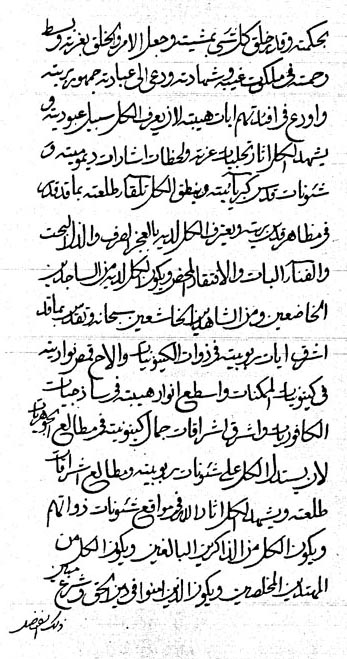 بحكمته وقد خلق كل شئ بمشيته وجعل الامر والخلق بعزته وبسط
رحمته فى ملكوت غيبه وشهادته ودعى الى عبادته جمهور بريته
و اودع فى افئدتهم ايات هيبته لان يعرف الكل سبيل عبوديته و
يشهد الكل اثار تجليات عزته ولحظات اشارات ديموميته و
شئونات قدس كبريائيته وينطق الكل تلقاء طلعته بما قد قدر
فى مظاهر قدرته ويعترف الكل لديه بالعجز الصرف والذل البحت
والفناء البات والافتقار المحض ويكون الكل لديه من الساجدين
الخاضعين ومن الشاهدين الخاشعين سبحانه وتقدس بما قد
اشرق ايات ربوبيته فى ذوات الكينونيات والاح قمص نورانيته
فى كينونيات الممكنات واسطع انوار هيبته فى ساذجيات
الكافوريات واشرق اشراقات جمال كينونيته فى مطالع الجوهريات
لان يستدل الكل على شئونات ربوبيته ويطالع اشراقات
طلعته ويشهد الكل اثار الامر فى مواقع شئونات ذواتهم
ويكون الكل من الذاكرين البالغين ويكون الكل من
المهتدين المخلصين ويكون الذين امنوا فى دين الحق و شرع مبين
ذلك الفضل